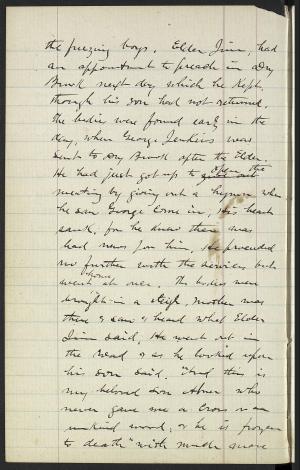 the freezing boys. Elder Jim, had
an appointment to preach in Dry
Brook next day, which he kept,
though his son had not returned.
the bodies were found early in the
day, when George Jenkins was
sent to Dry Brook after the Elder.
He had just got up to open the
meeting by giving out a hymn when
he saw George come in, His heart
sank, for he knew there was
bad news for him, He proceeded
no further with the services but
went home at once. The bodies were
brought in a sleigh, Mother was
there & saw & heard what Elder
Jim said, He went out in
the road & as he looked upon
his son said, "And this is
my beloved son Abner who
never gave me a cross or an
unkind word, & he is frozen
to death" with much more